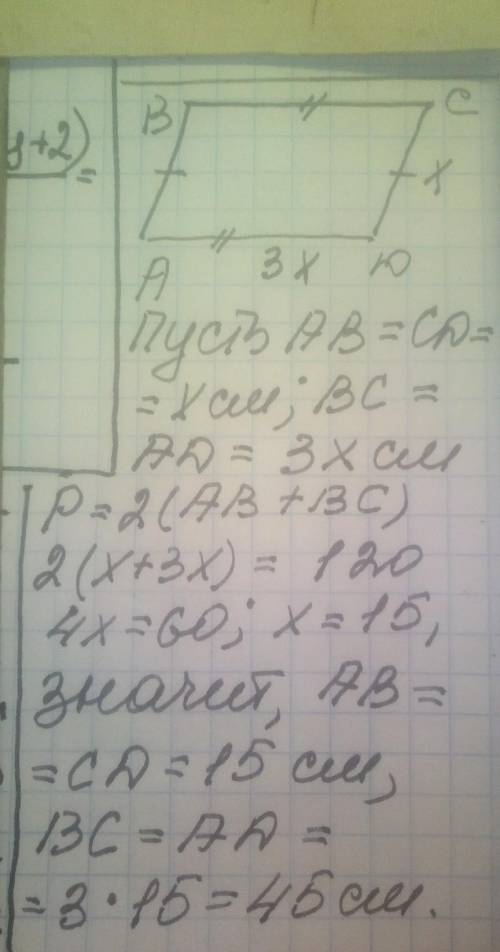 y+2)
=
B
C
x
A
3x
D
Пусть AB = CD =
= x см; BC =
AD = 3x см
P = 2(AB + BC)
2(x+3x) = 120
4x = 60; x = 15,
значит, AB =
= CD = 15 см,
BC = AD =
= 3 · 15 = 45 см.